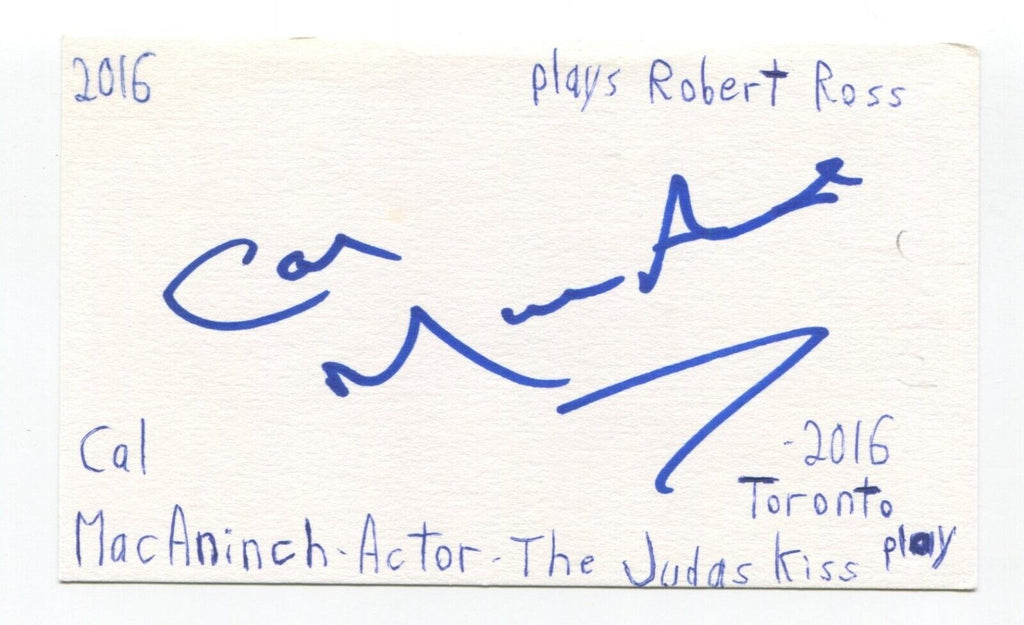 2016 plays Robert Ross
Cal
-2016
Toronto
MacAninch-Actor-The Judas Kiss play